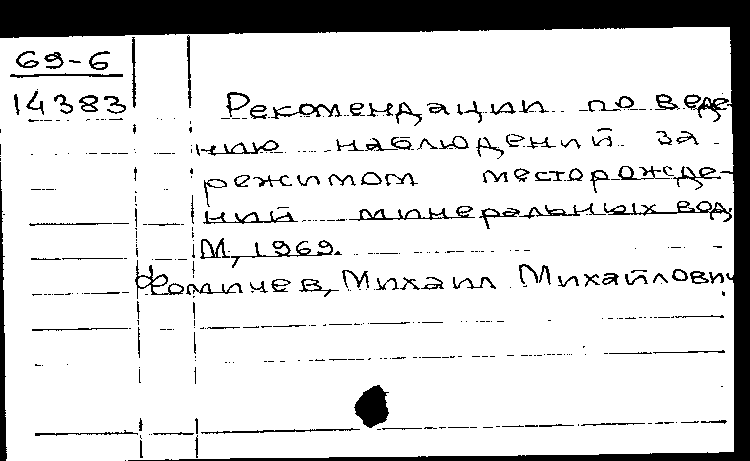 69-6
14383
Рекомендации по веде-
нию наблюдений за
режимом месторожде-
ний минеральных вод.
М, 1969.
Фомичев, Михаил Михайлович